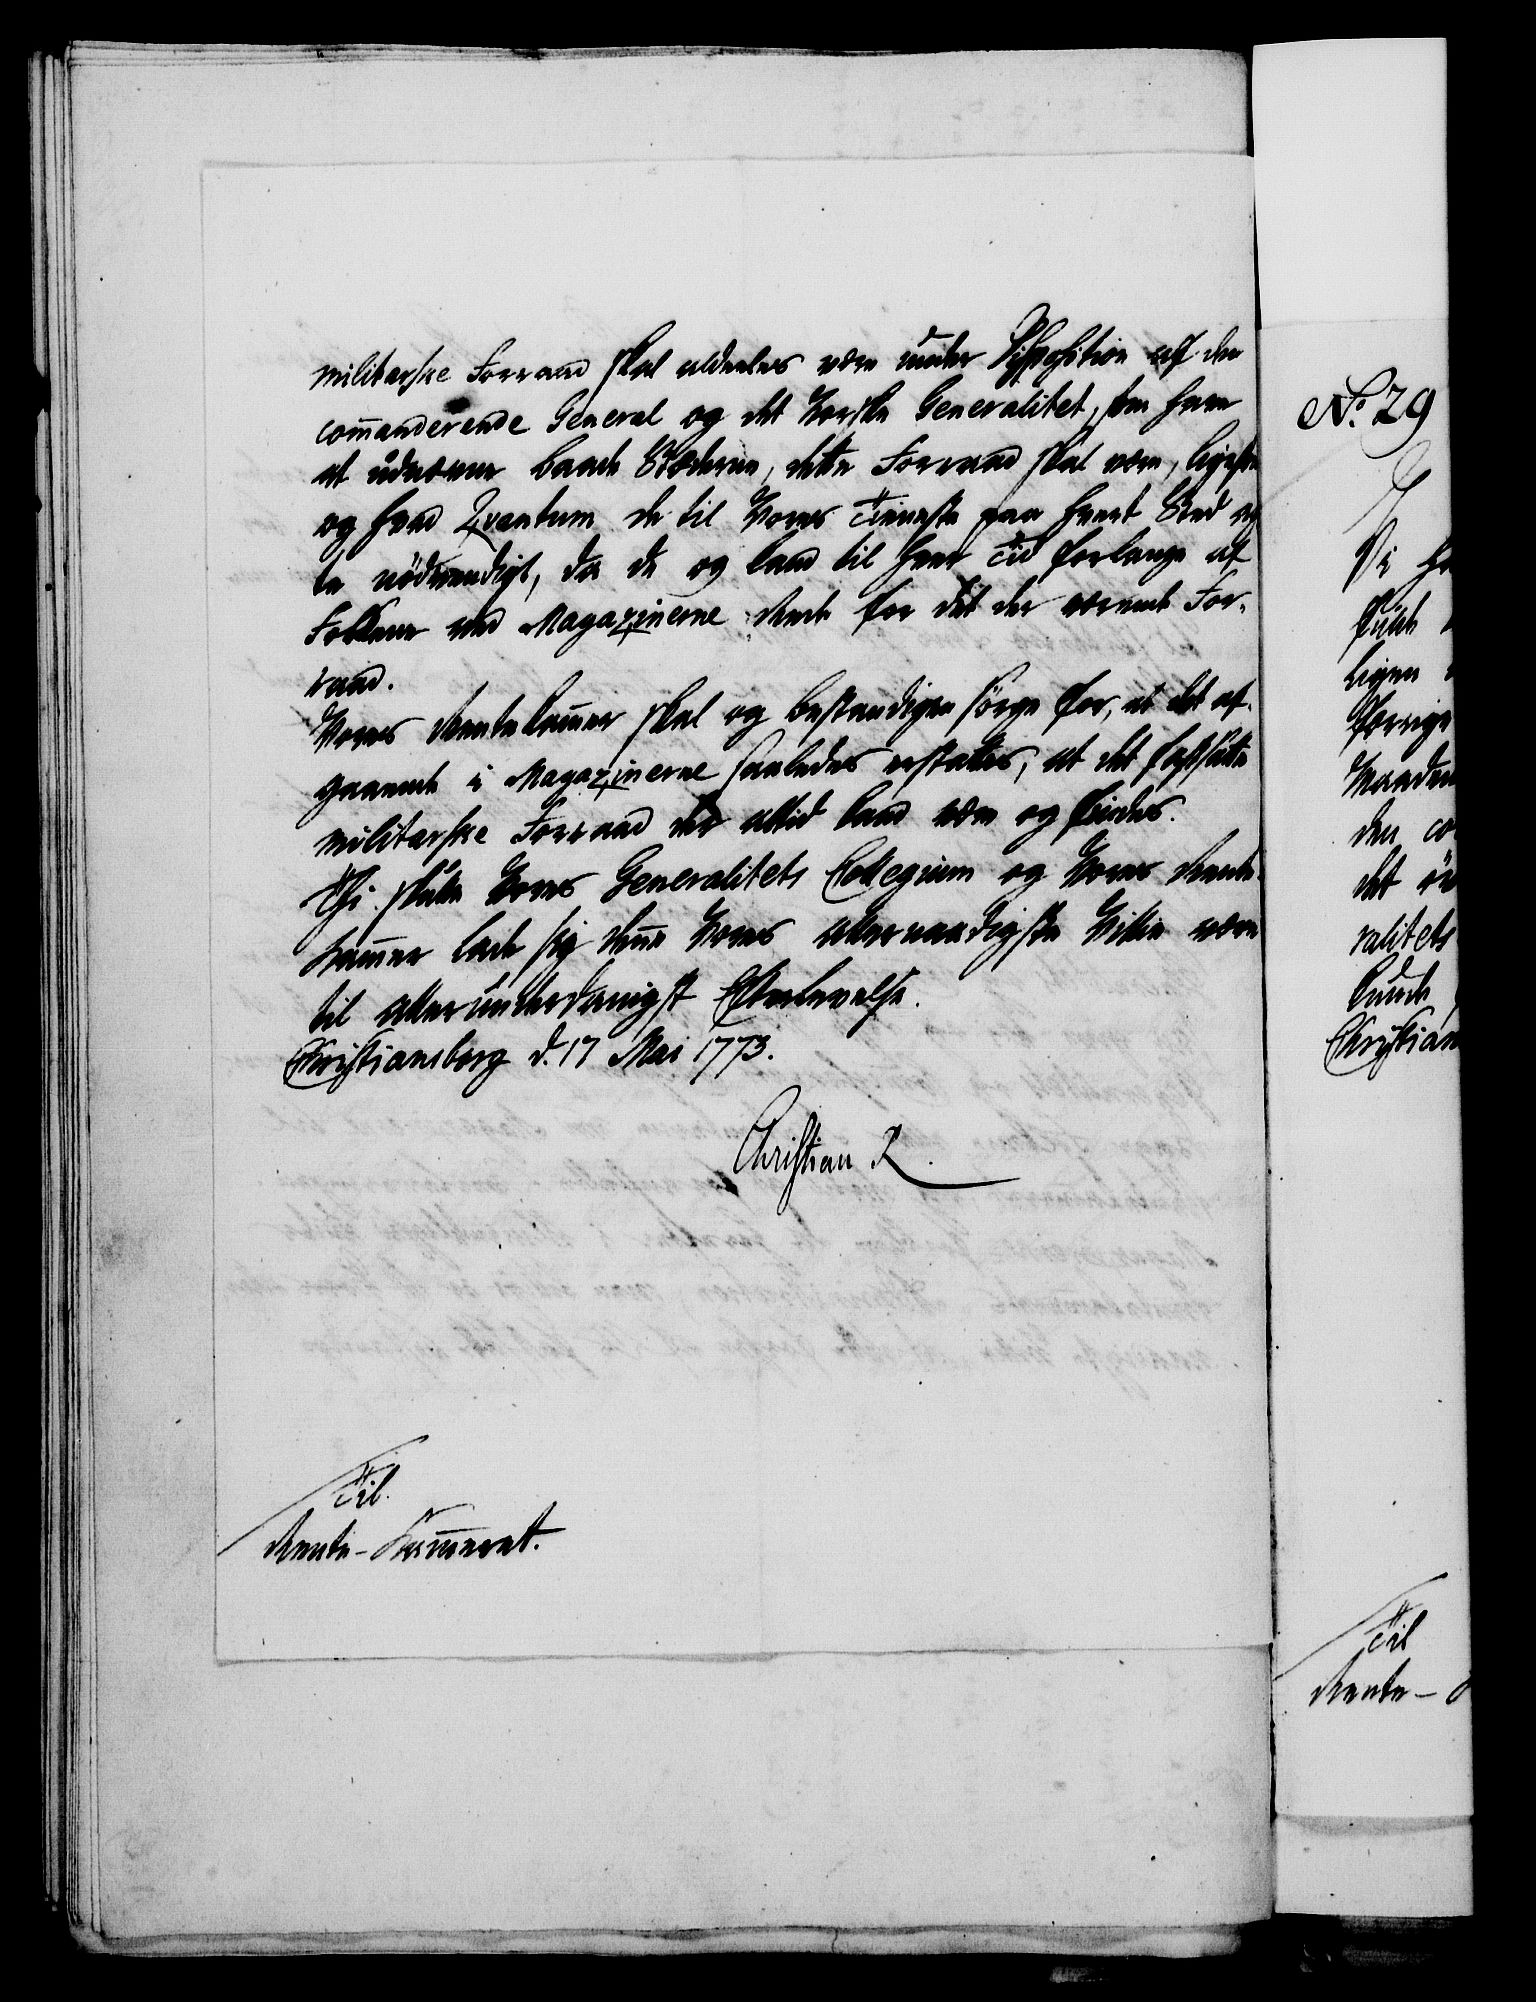 militarske Forraad skal aldeeles være under Disposition af den
comanderende General og det Norske Generalitet, som have
at udnævne baade Stæderne, dette Forraad skal være, ligesom
og hvad Qvantum de til Vores Tieneste paa hvert Sted
nödvendigt, da de og kand til hver Tid forlange af
Folkene ved Magazinerne Rede for det der værende For-
raad.
Vores Rentekamer skal og bestandigen sörge for, at det af-
gaaende i Magazinerne saaledes erstattes, at det fastsatte
militarske Forraad der altid kand være og findes.
Thi skulle Vores Generalitets Collegium og Vores Rente-
kamer lade sig denne Vores allernaadigste Villie være
til allerunderdanigst Efterlevelse.
Christiansborg d. 17 Mai 1773.
Christian R.
Til
Rente-Kameret.
No. 29
Vi
ligen
forrige
den co
det
ralitets
Christian
Til
Rente-